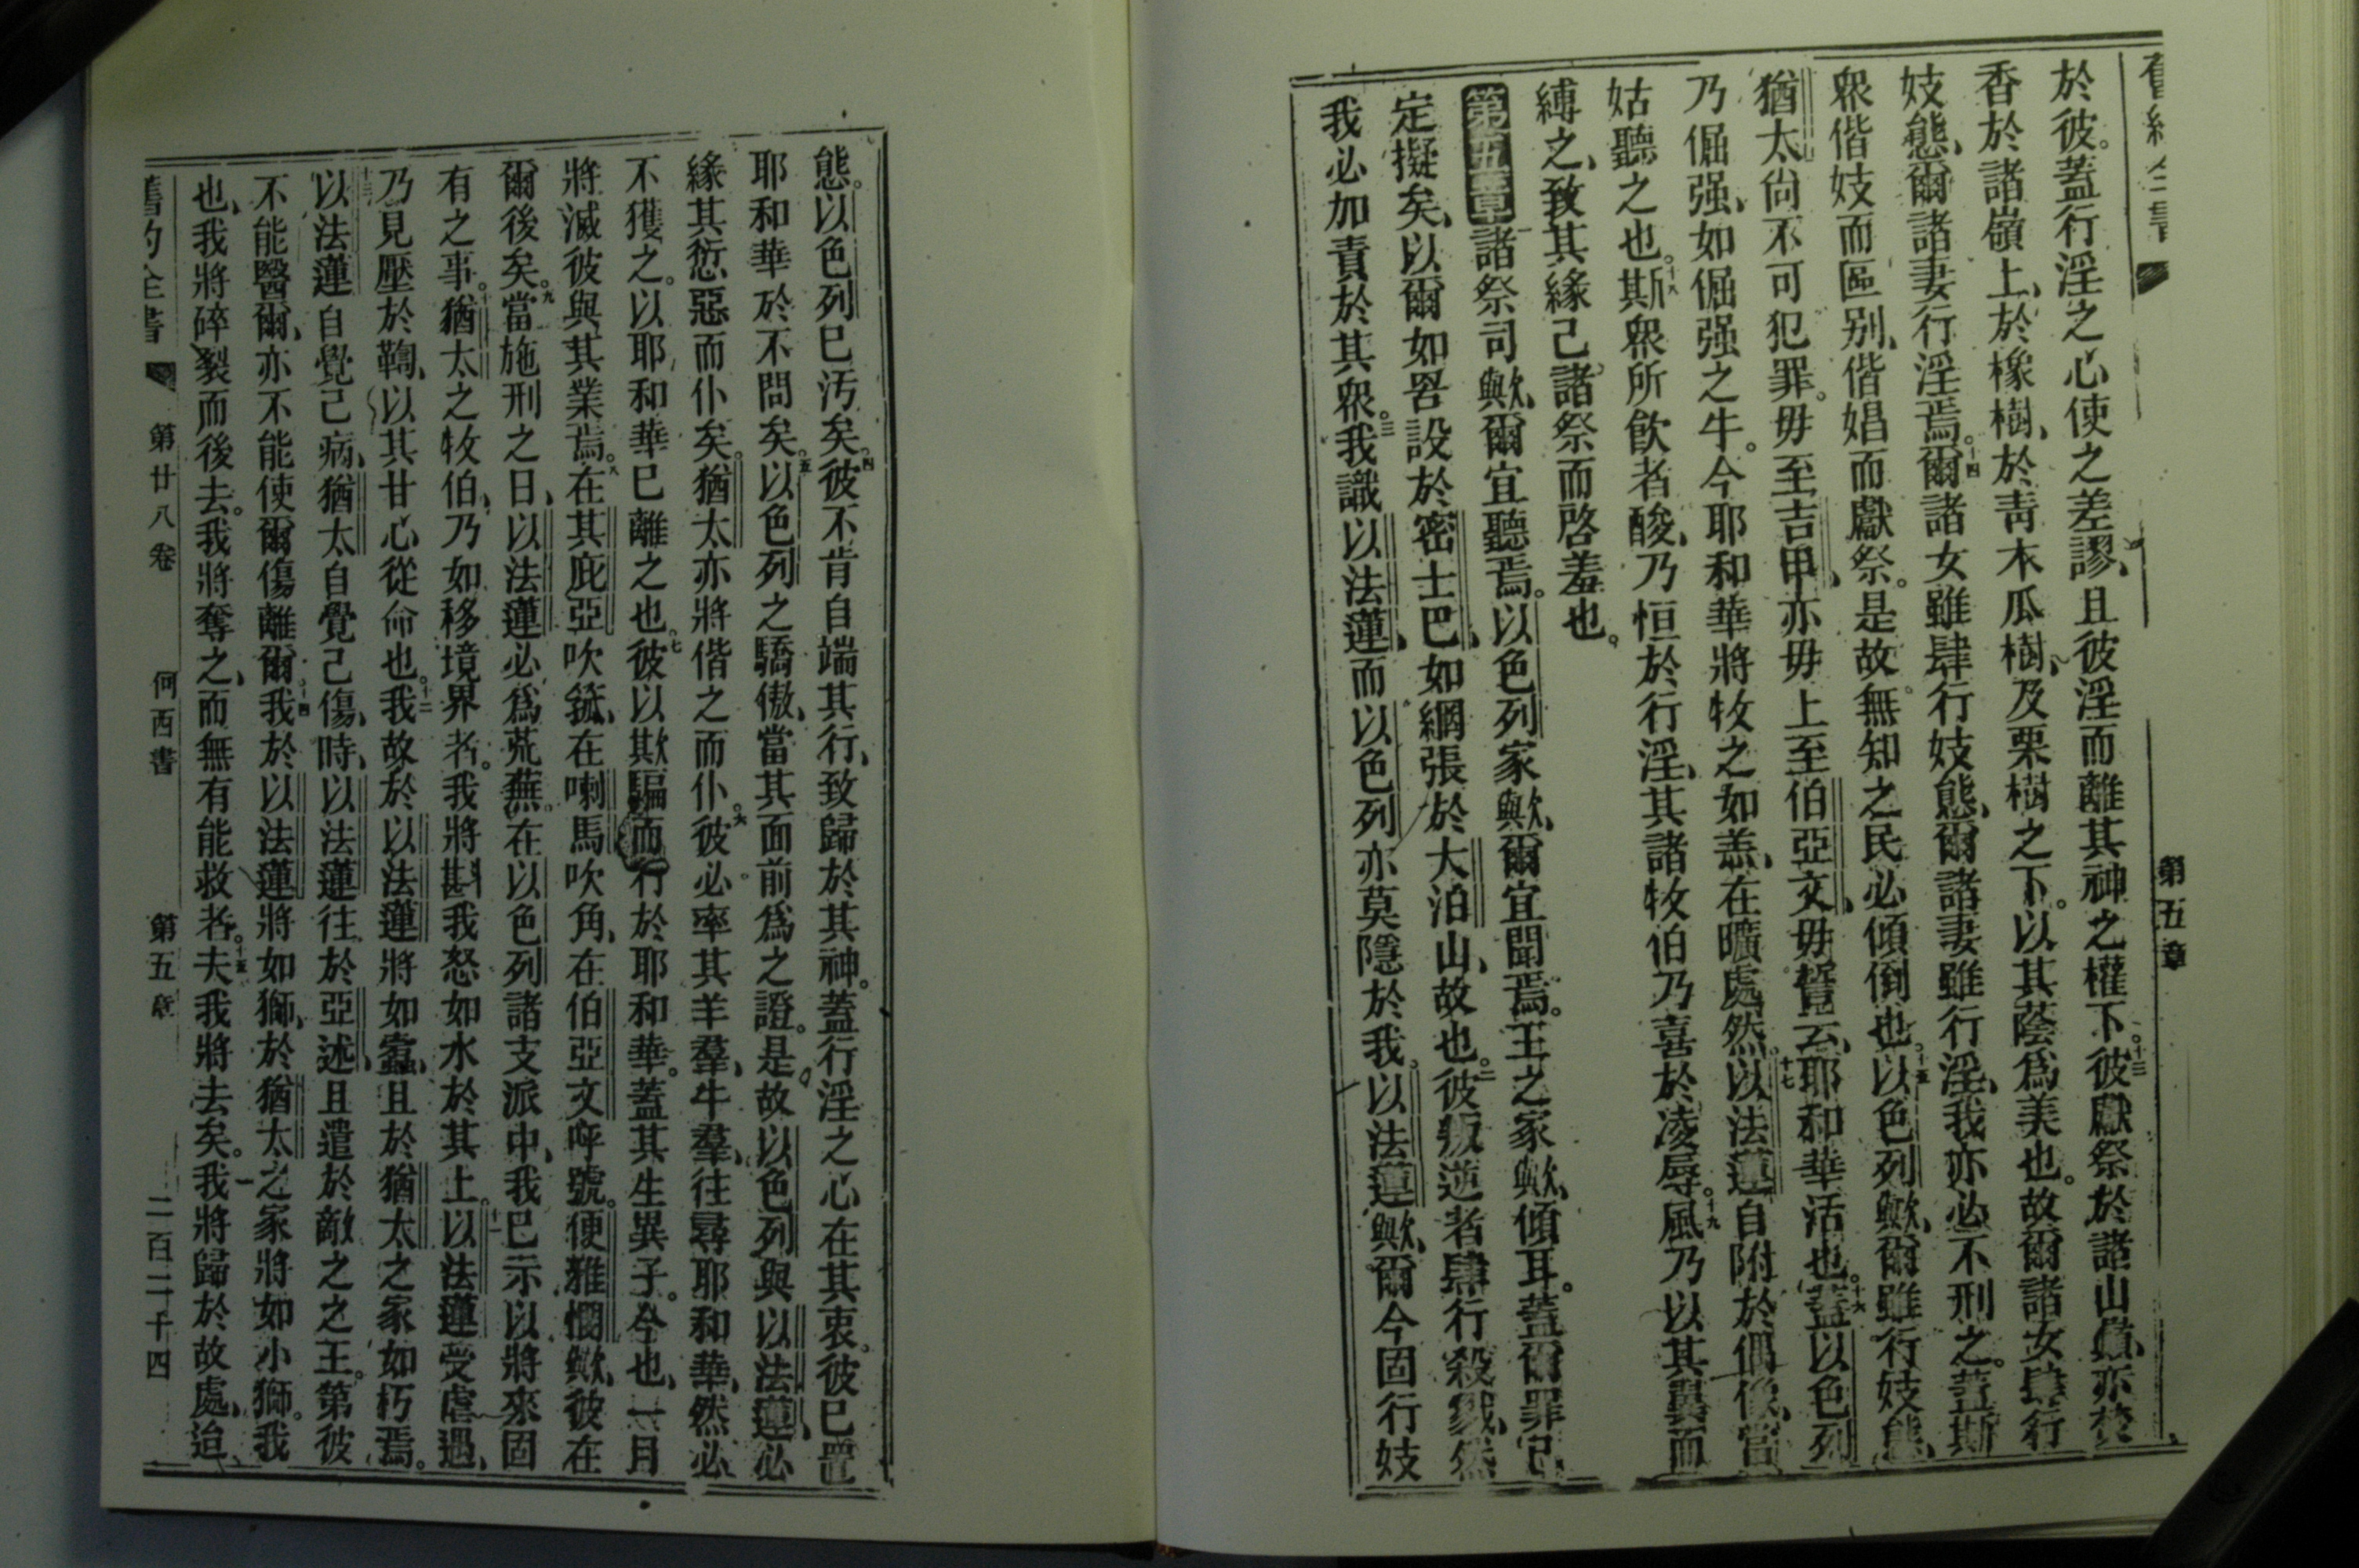 第五章
於彼。蓋行淫之心使之差謬、且彼淫而離其神之權下。十三彼獻祭於諸山嶺、亦焚
香於諸嶺上、於橡樹、於靑木瓜樹、及栗樹之下。以其蔭爲美也。故爾諸女肆行
妓態、爾諸妻行淫焉。十四爾諸女雖肆行妓態、爾諸妻雖行淫、我亦必不刑之。蓋斯
衆偕妓而區别、偕娼而獻祭。是故無知之民必傾倒也。十五以色列歟、爾雖行妓態、
猶太尙不可犯罪。毋至吉甲、亦毋上至伯亞文、毋誓云、耶和華活也。十六蓋以色列
乃倔强、如倔强之牛。今耶和華將牧之如羔、在曠處然。十七以法蓮自附於偶像、當
姑聽之也。十八斯衆所飮者酸、乃恒於行淫、其諸牧伯乃喜於凌辱。十九風乃以其翼而
縛之、致其緣己諸祭而啓羞也。
第五章諸祭司歟、爾宜聽焉。以色列家歟、爾宜聞焉。王之家歟、傾耳。蓋爾罪已
定擬矣、以爾如罟設於密士巴、如網張於大泊山、故也。二彼叛逆者肆行殺戮、然
我必加責於其衆。三我識以法蓮、而以色列亦莫隱於我。以法蓮歟、爾今固行妓
態。以色列已污矣。四彼不肯自端其行、致歸於其神。蓋行淫之心在其衷。彼已置
耶和華於不問矣。五以色列之驕傲、當其面前爲之證。是故以色列與以法蓮、必
緣其愆惡而仆矣。猶太亦將偕之而仆。六彼必率其羊羣、牛羣、往尋耶和華、然必
不獲之。以耶和華已離之也。七彼以欺騙而行於耶和華。蓋其生異子。今也、一月
將滅彼與其業焉。八在其庇亞吹箛、在喇馬吹角、在伯亞文呼號。便雅憫歟、彼在
爾後矣。九當施刑之日、以法蓮必爲荒蕪。在以色列諸支派中、我已示以將來固
有之事。十猶太之牧伯、乃如移境界者。我將斟我怒如水於其上。十一以法蓮受虐遇、
乃見壓於鞫、以其甘心從命也。十二我故於以法蓮將如蠹、且於猶太之家如朽焉。
十三以法蓮自覺己病、猶太自覺己傷、時、以法蓮往於亞述、且遣於敵之之王。第彼
不能醫爾、亦不能使爾傷離爾。十四我於以法蓮將如獅、於猶太之家將如小獅。我
也、我將碎裂而後去。我將奪之、而無有能救者。十五夫我將去矣。我將歸於故處、迨
舊約全書 第廿八卷 何西書 第五章 二百二十四